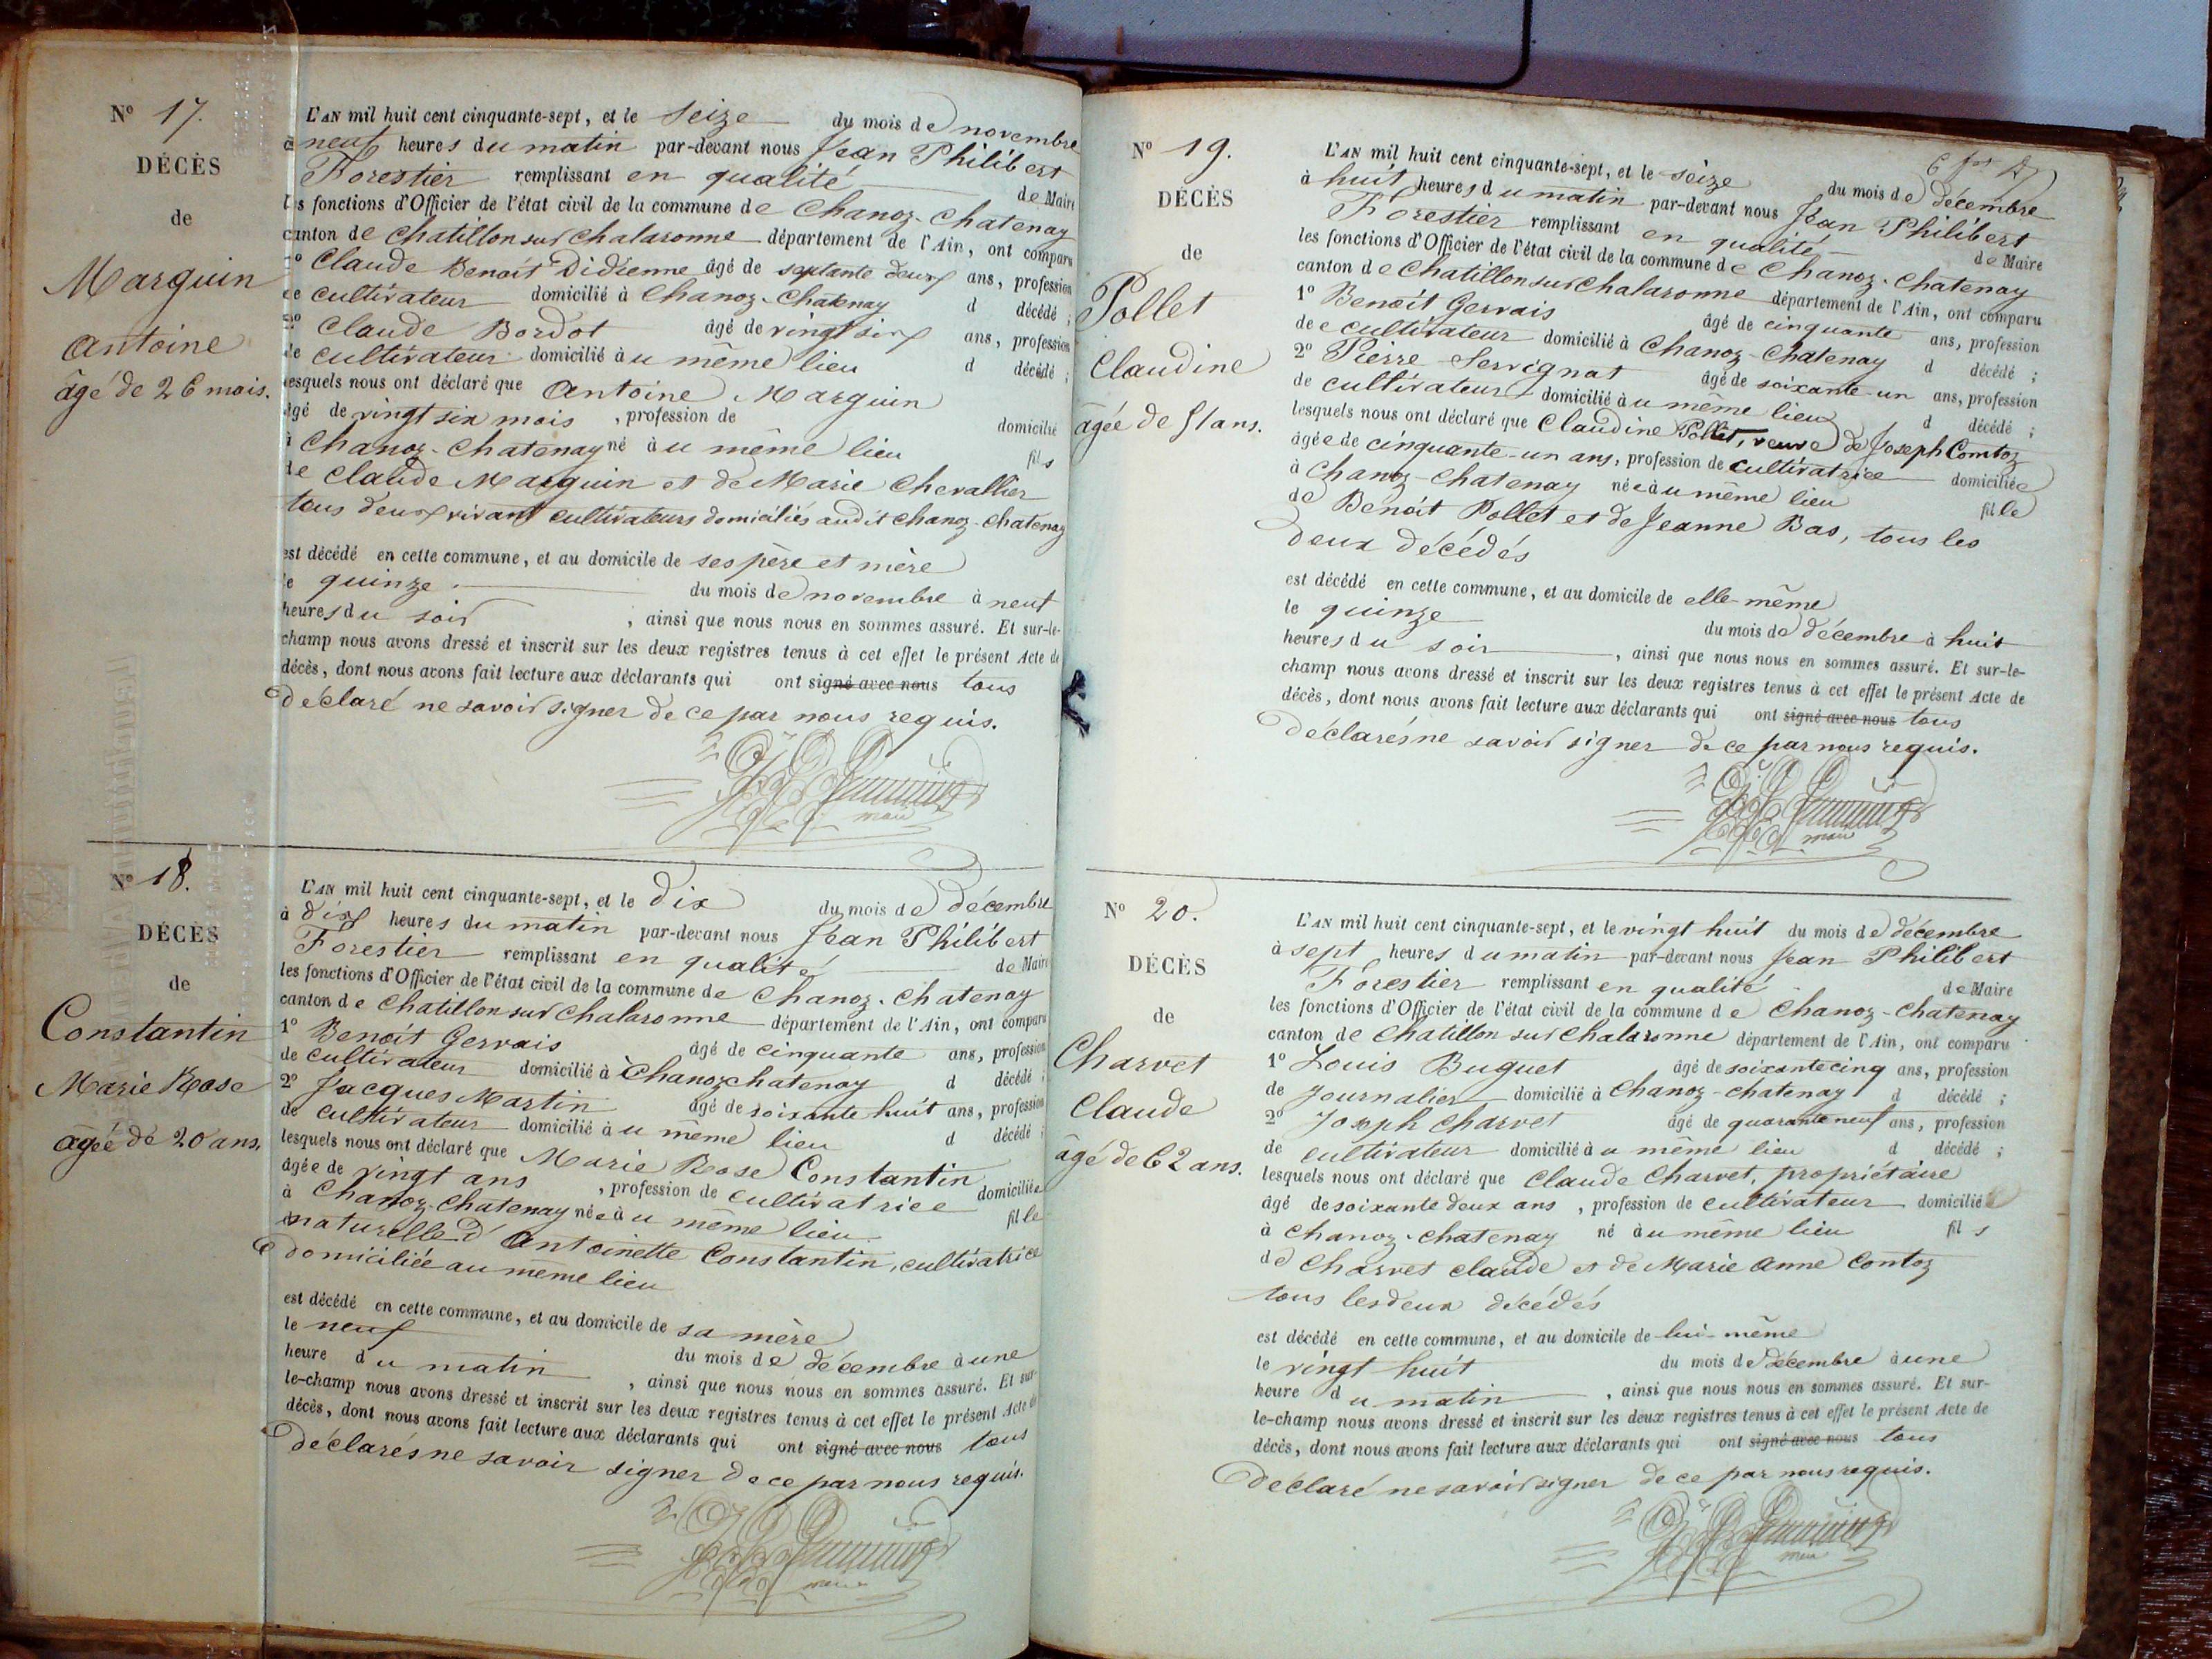 N° 17.
DÉCÈS
de
Marguin
Antoine
âgé de 26 mois.
L'AN mil huit cent cinquante-sept, et le seize du mois de novembre
à neuf heures du matin par-devant nous Jean Philibert
Forestier remplissant en qualité de Maire
les fonctions d'Officier de l'état civil de la commune de Chanoz-Chatenay
canton de Chatillon sur Chalaronne département de l'Ain, ont comparu
1° Claude Benoit Didienne âgé de septante deux ans, profession
de cultivateur domicilié à Chanoz-Chatenay d décédé ;
2° Claude Bordot âgé de vingt six ans, profession
de cultivateur domicilié à u même lieu d décédé ;
lesquels nous ont déclaré que Antoine Marguin
âgé de vingt six mois , profession de domicilié
à Chanoz-Chatenay né à u même lieu fils
de Claude Marguin et de Marie Chevallier
tous deux vivant cultivateurs domiciliés audit Chanoz-Chatenay
est décédé en cette commune, et au domicile de ses père et mère
le quinze du mois de novembre à neuf
heures du soir , ainsi que nous nous en sommes assuré. Et sur-le-
champ nous avons dressé et inscrit sur les deux registres tenus à cet effet le présent Acte de
décès, dont nous avons fait lecture aux déclarants qui ont signé avec nous tous
déclaré ne savoir signer de ce par nous requis.
maire
N° 18.
DÉCÈS
de
Constantin
Marie Rose
âgée de 20 ans.
L'AN mil huit cent cinquante-sept, et le dix du mois de décembre
à dix heures du matin par-devant nous Jean Philibert
Forestier remplissant en qualité de Maire
les fonctions d'Officier de l'état civil de la commune de Chanoz-Chatenay
canton de Chatillon sur Chalaronne département de l'Ain, ont comparu
1° Benoit Gervais âgé de cinquante ans, profession
de cultivateur domicilié à Chanoz chatenay d décédé ;
2° Jacques Martin âgé de soixante huit ans, profession
de cultivateur domicilié à u même lieu d décédé ;
lesquels nous ont déclaré que Marie Rose Constantin
âgée de vingt ans , profession de cultivatrice domiciliée
à Chanoz-Chatenay née à u même lieu fille
naturelle d'Antoinette Constantin, cultivatrice
domiciliée au même lieu
est décédé en cette commune, et au domicile de sa mère
le neuf du mois de décembre à une
heure du matin , ainsi que nous nous en sommes assuré. Et sur-
le-champ nous avons dressé et inscrit sur les deux registres tenus à cet effet le présent Acte de
décès, dont nous avons fait lecture aux déclarants qui ont signé avec nous tous
déclarés ne savoir signer de ce par nous requis.
maire
N° 19.
DÉCÈS
de
Pollet
Claudine
âgée de 51 ans.
L'AN mil huit cent cinquante-sept, et le seize du mois de décembre
à huit heures du matin par-devant nous Jean Philibert
Forestier remplissant en qualité de Maire
les fonctions d'Officier de l'état civil de la commune de Chanoz-Chatenay
canton de Chatillon sur Chalaronne département de l'Ain, ont comparu
1° Benoit Gervais âgé de cinquante ans, profession
de e cultivateur domicilié à Chanoz-Chatenay d décédé ;
2° Pierre Servignat âgé de soixante-un ans, profession
de cultivateur domicilié à u même lieu d décédé ;
lesquels nous ont déclaré que Claudine Pollet, veuve de Joseph Comtoz
âgée de cinquante-un ans, profession de cultivatrice domiciliée
à Chanoz-Chatenay née à u même lieu fille
de Benoit Pollet et de Jeanne Bas, tous les
deux décédés
est décédé en cette commune, et au domicile de elle-même
le quinze du mois de décembre à huit
heures du soir , ainsi que nous nous en sommes assuré. Et sur-le-
champ nous avons dressé et inscrit sur les deux registres tenus à cet effet le présent Acte de
décès, dont nous avons fait lecture aux déclarants qui ont signé avec nous tous
déclarés ne savoir signer de ce par nous requis.
maire
N° 20.
DÉCÈS
de
Charvet
Claude
âgé de 62 ans.
L'AN mil huit cent cinquante-sept, et le vingt huit du mois de décembre
à sept heures du matin par-devant nous Jean Philibert
Forestier remplissant en qualité de Maire
les fonctions d'Officier de l'état civil de la commune de Chanoz-Chatenay
canton de Chatillon sur Chalaronne département de l'Ain, ont comparu
1° Louis Buguet âgé de soixante cinq ans, profession
de Journalier domicilié à Chanoz-chatenay d décédé ;
2° Joseph Charvet âgé de quarante neuf ans, profession
de cultivateur domicilié à u même lieu d décédé ;
lesquels nous ont déclaré que Claude Charvet, propriétaire
âgé de soixante deux ans , profession de cultivateur domicilié
à Chanoz-Chatenay né à u même lieu fils
de Charvet Claude et de Marie Anne Contoz
tous les deux décédés
est décédé en cette commune, et au domicile de lui-même
le vingt huit du mois de décembre à une
heure du matin , ainsi que nous nous en sommes assuré. Et sur-
le-champ nous avons dressé et inscrit sur les deux registres tenus à cet effet le présent Acte de
décès, dont nous avons fait lecture aux déclarants qui ont signé avec nous tous
déclaré ne savoir signer de ce par nous requis.
maire